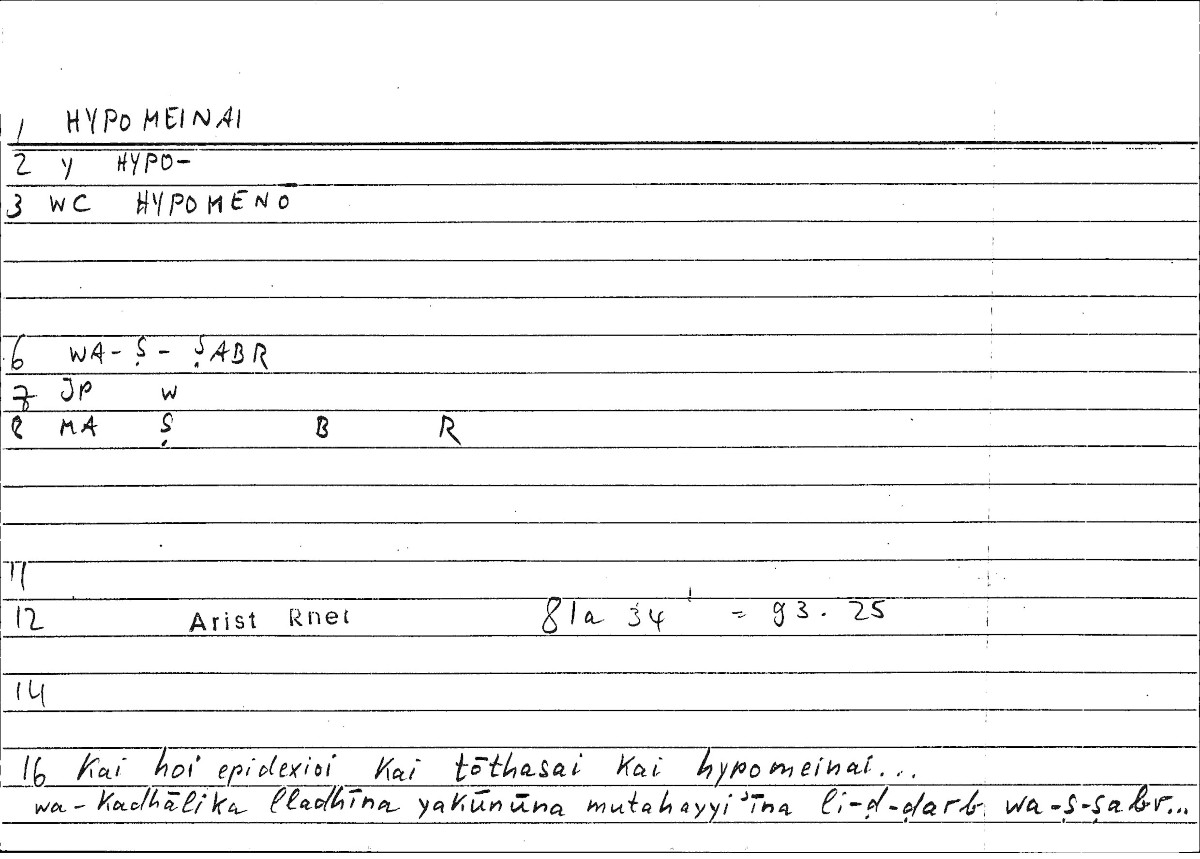 1 HYPOMEINAI
2 y HYPO-
3 WC HYPOMENŌ
6 WA-Ṣ-ṢABR
7 JP W
8 MA Ṣ B R
11
12 Arist Rhet 81a 34 = 93.25
14
16 Kai hoi epidexioi Kai tōthasai Kai hypomeinai...
wa-Kadhālika lladhīna yakūnūna mutahayyiʾīna li-ḍ-ḍarb wa-ṣ-ṣabr...